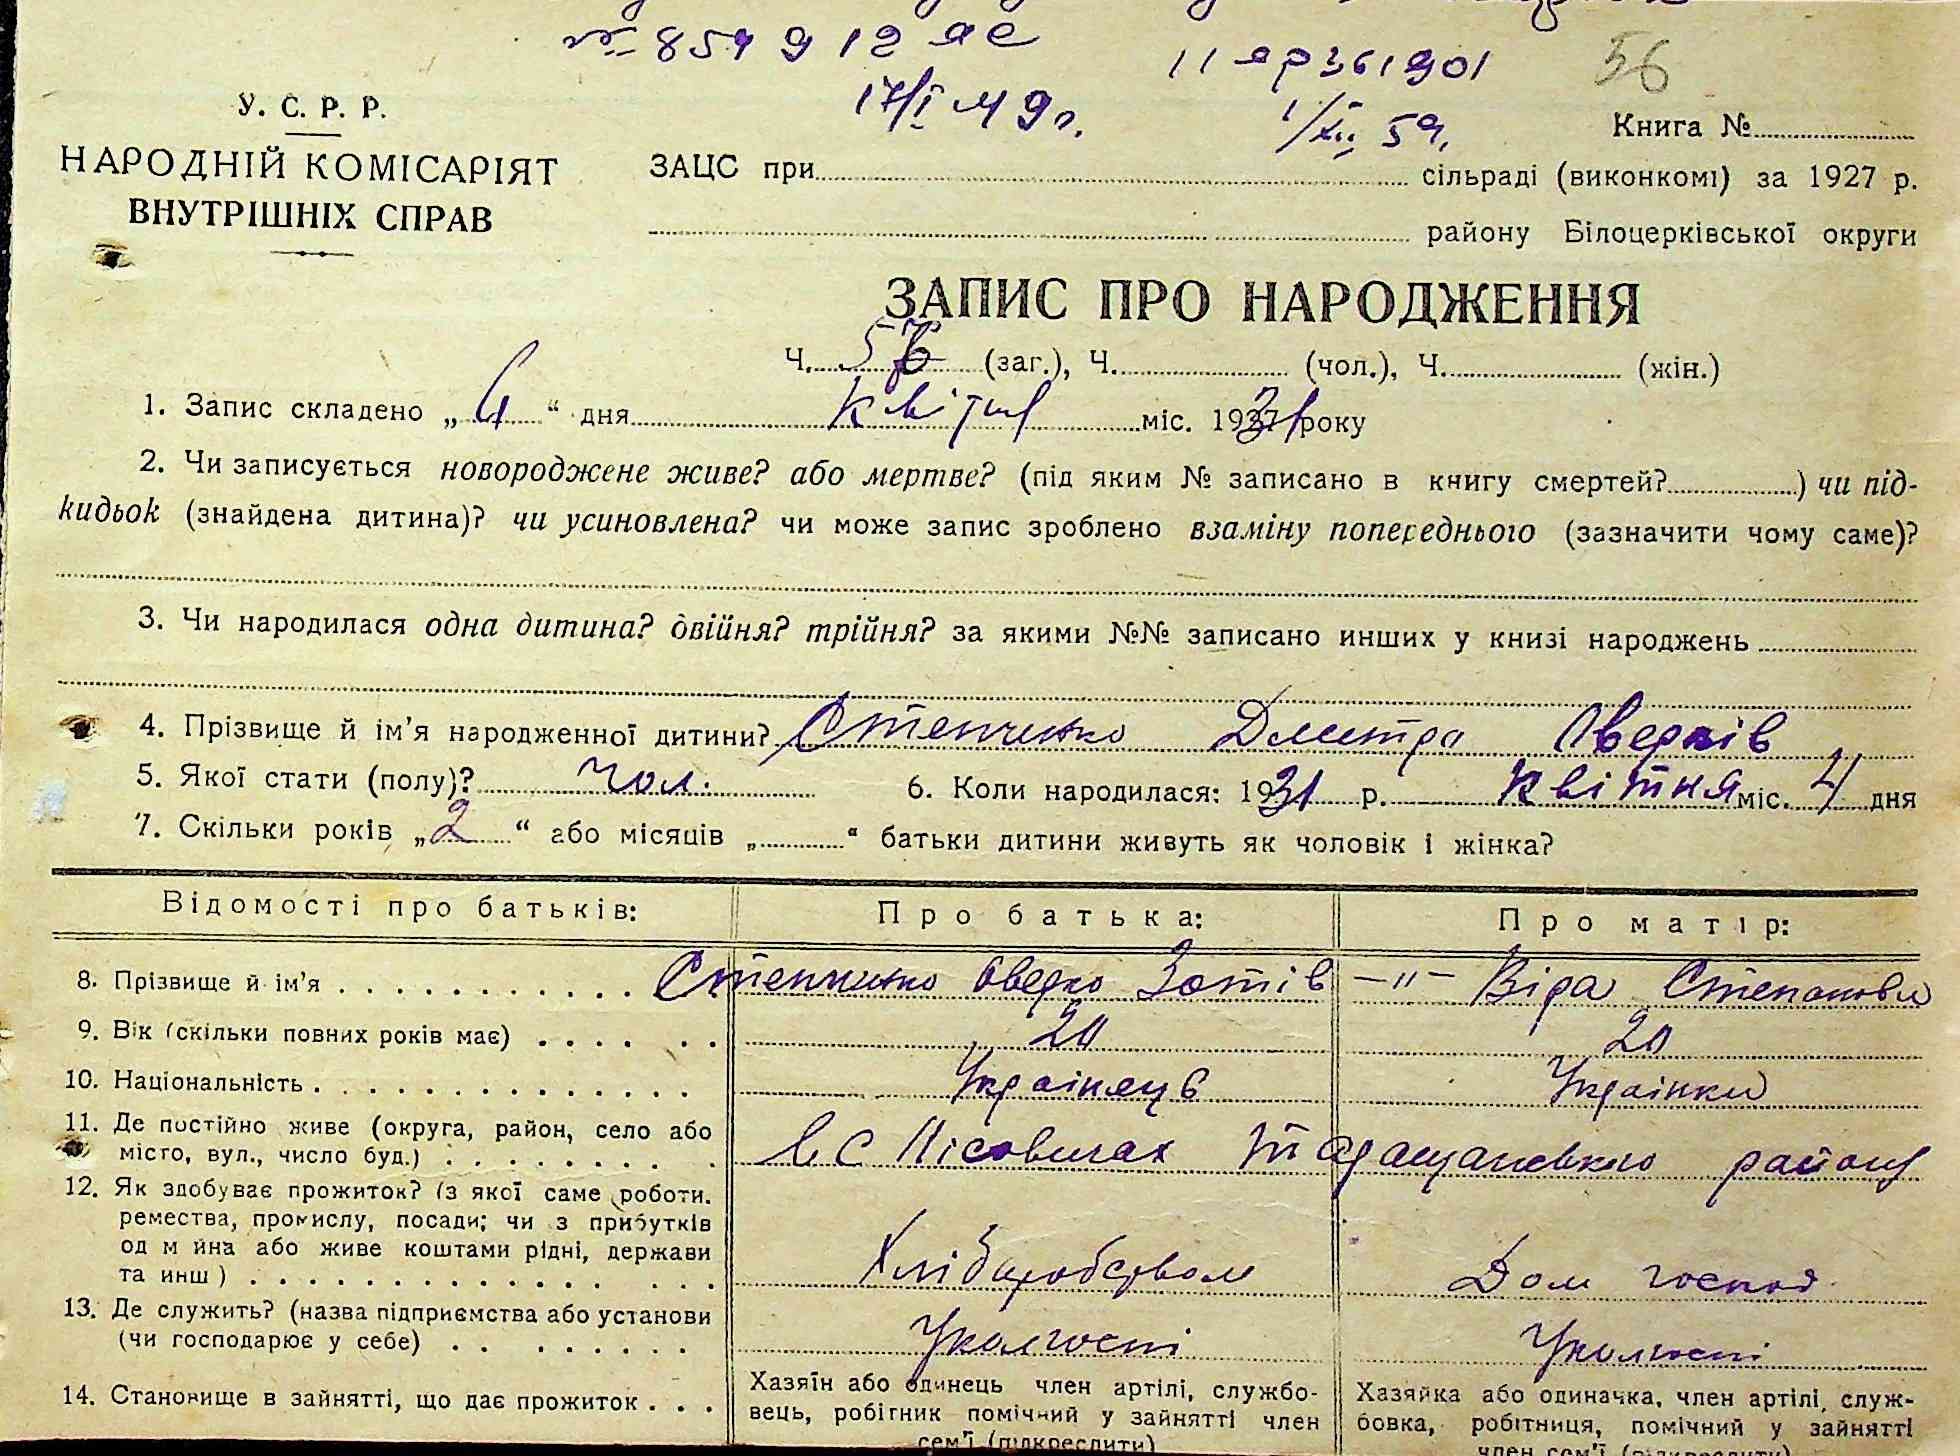 № 854912 ЯС
II ЯР 361901
56
17/I 49 г.
1/XII 59.
У. С. Р. Р.
НАРОДНІЙ КОМІСАРІЯТ
ВНУТРІШНІХ СПРАВ
Книга №
ЗАЦС при сільраді (виконкомі) за 1927 р.
району Білоцерківської округи
ЗАПИС ПРО НАРОДЖЕННЯ
Ч. 56 (заг.), Ч. (чол.), Ч. (жін.)
1. Запис складено „ “ дня Квітня міс. 1931 року
2. Чи записується новороджене живе? або мертве? (під яким № записано в книгу смертей? ) чи під-
кидьок (знайдена дитина)? чи усиновлена? чи може запис зроблено взаміну попереднього (зазначити чому саме)?
3. Чи народилася одна дитина? двійня? трійня? за якими №№ записано инших у книзі народжень
4. Прізвище й ім’я народженної дитини? Стенчинко Дмитра Оверків
5. Якої стати (полу)? чол. 6. Коли народилася: 1931 р. Квітня міс. 4 дня
7. Скільки років „2“ або місяців „ “ батьки дитини живуть як чоловік і жінка?
Відомості про батьків: Про батька: Про матір:
8. Прізвище й ім’я Стенчинко Оверко Зотів —"— Віра Степанова
9. Вік (скільки повних років має) 20 20
10. Національність Українець Українка
11. Де постійно живе (округа, район, село або
місто, вул., число буд.) в с Лісовичах Таращанського району
12. Як здобуває прожиток? (з якої саме роботи.
ремества, промислу, посади; чи з прибутків
од м йна або живе коштами рідні, держави
та инш) Хліборобством Дом господ.
13. Де служить? (назва підприємства або установи
(чи господарює у себе) Уколгоспі Уколгоспі
14. Становище в зайнятті, що дає прожиток
Хазяїн або одинець член артілі, службо-
вець, робітник помічний у зайнятті член
сем’ї (підкреслити)
Хазяйка або одиначка, член артілі, служ-
бовка, робітниця, помічний у зайнятті
член сем’ї (підкреслити)